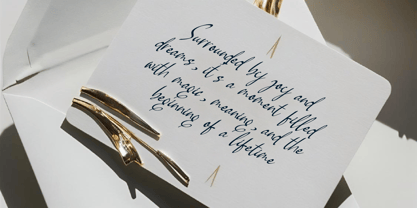 Surrounded by joy and
dreams, it's a moment filled
with magic, meaning, and the
beginning of a lifetime